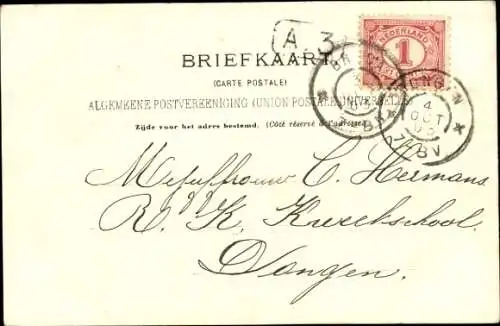 A. 3
NEDERLAND
1
BRIEFKAART
(CARTE POSTALE)
ALGEMEENE POSTVEREENIGING (UNION POSTALE UNIVERSELLE)
Zijde voor het adres bestemd. (Côté réservé à l'adresse.)
DONGEN
4
OCT
Mejuffrouw C. Hermans
R. K. Kweekschool
Dongen.